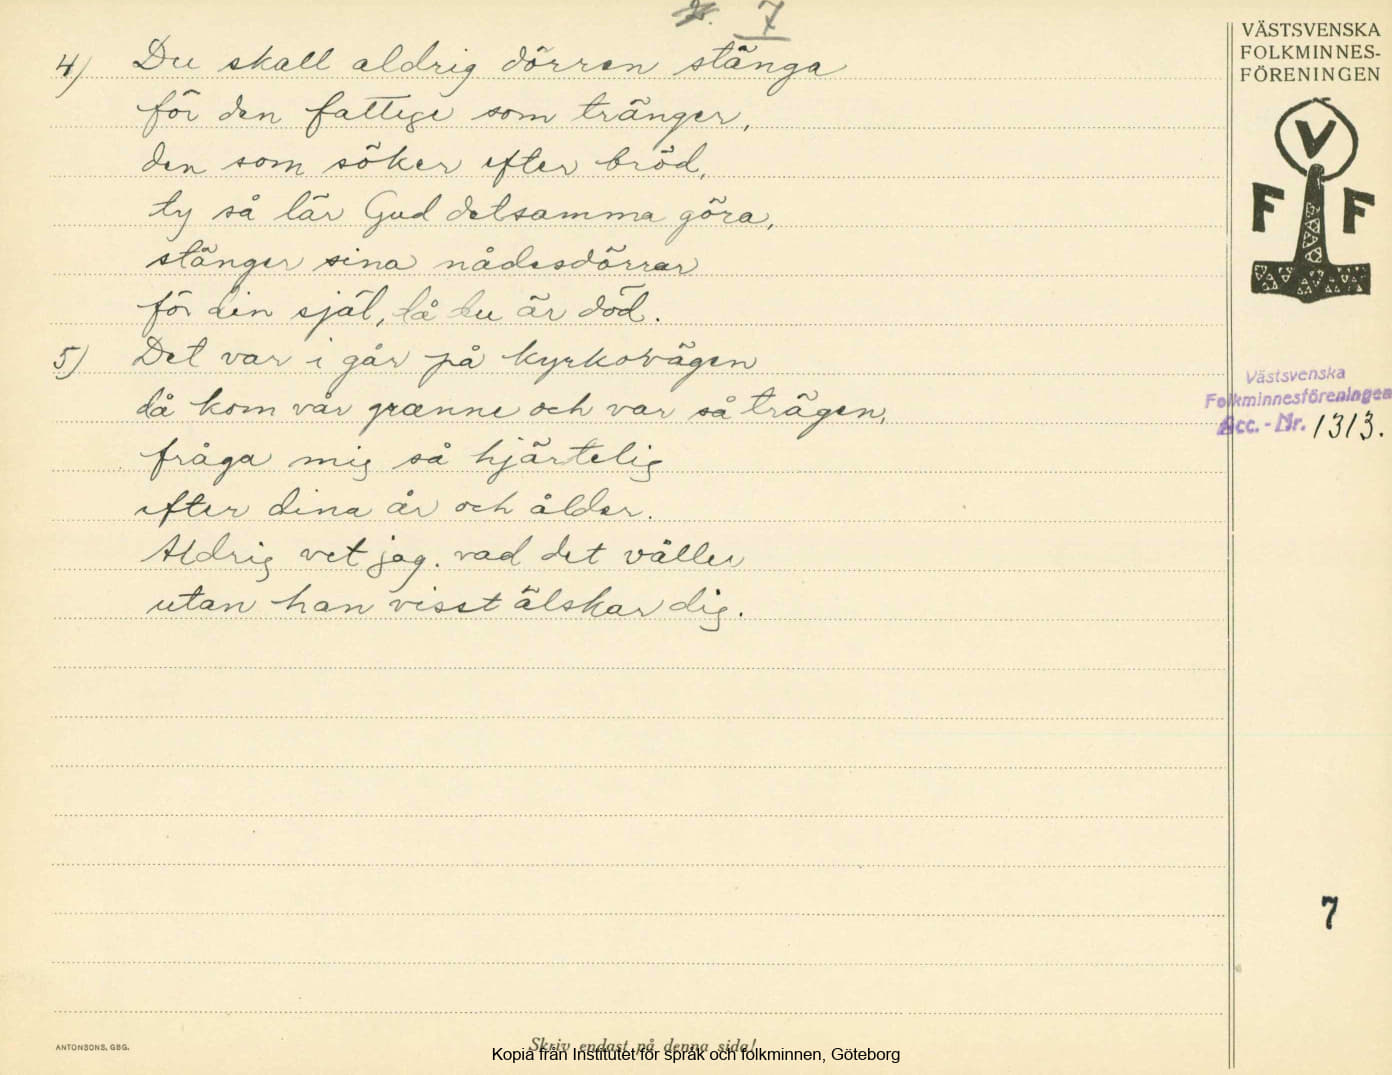 7
4) Du skall aldrig dörren stänga
för den fattige som tränger,
den som söker efter bröd,
ty så lär Gud detsamma göra,
stänger sina nådesdörrar
för din själ, då du är död.
5) Det var i går på kyrkovägen
då kom vår granne och var så trägen,
fråga mig så hjärtelig
efter dina år och ålder.
Aldrig vet jag. vad det våller
utan han visst älskar dig.
VÄSTSVENSKA
FOLKMINNES-
FÖRENINGEN
V
F F
Västsvenska
Folkminnesföreningen
Acc.-Nr. 1313.
7
ANTONSONS, GBG.
Skriv endast på denna sida!
Kopia från Institutet för språk och folkminnen, Göteborg